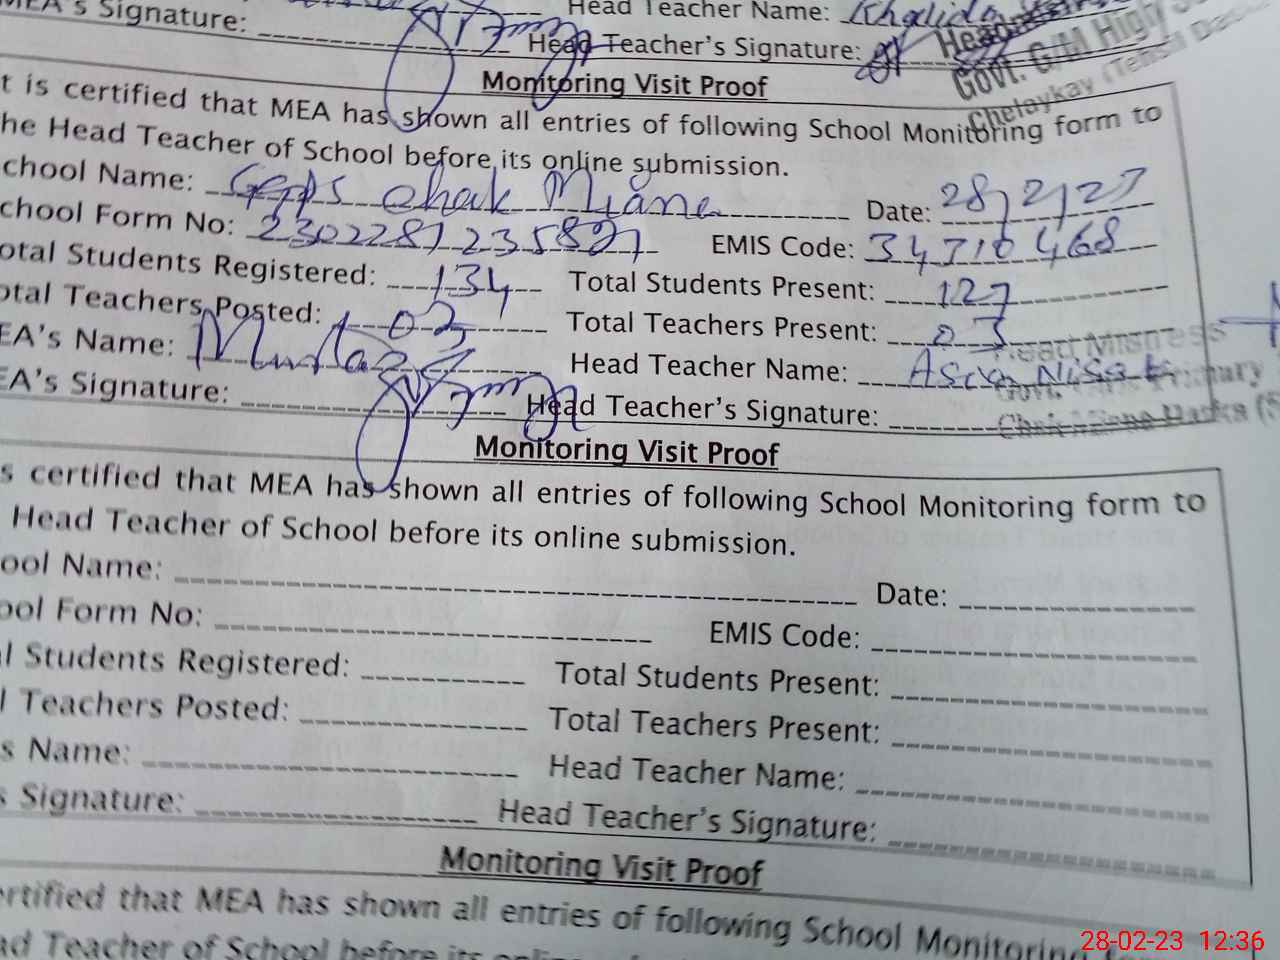 MEA's Signature: Head Teacher Name: Khalida
Head Teacher's Signature:
Govt. G/M High
Chelaykay (Tehsil
Monitoring Visit Proof
t is certified that MEA has shown all entries of following School Monitoring form to
he Head Teacher of School before its online submission.
chool Name: GGPS Chak Miana Date: 28/2/23
chool Form No: EMIS Code: 34310468
otal Students Registered: 134 Total Students Present: 127
otal Teachers Posted: 03 Total Teachers Present: 03
EA's Name: Mumtaz Head Teacher Name: Asia Nisat
Head Mistress
EA's Signature: Head Teacher's Signature:
Monitoring Visit Proof
s certified that MEA has shown all entries of following School Monitoring form to
Head Teacher of School before its online submission.
ool Name: Date:
ool Form No: EMIS Code:
l Students Registered: Total Students Present:
l Teachers Posted: Total Teachers Present:
s Name: Head Teacher Name:
s Signature: Head Teacher's Signature:
Monitoring Visit Proof
ertified that MEA has shown all entries of following School Monitoring form
ad Teacher of School before its online
28-02-23 12:36